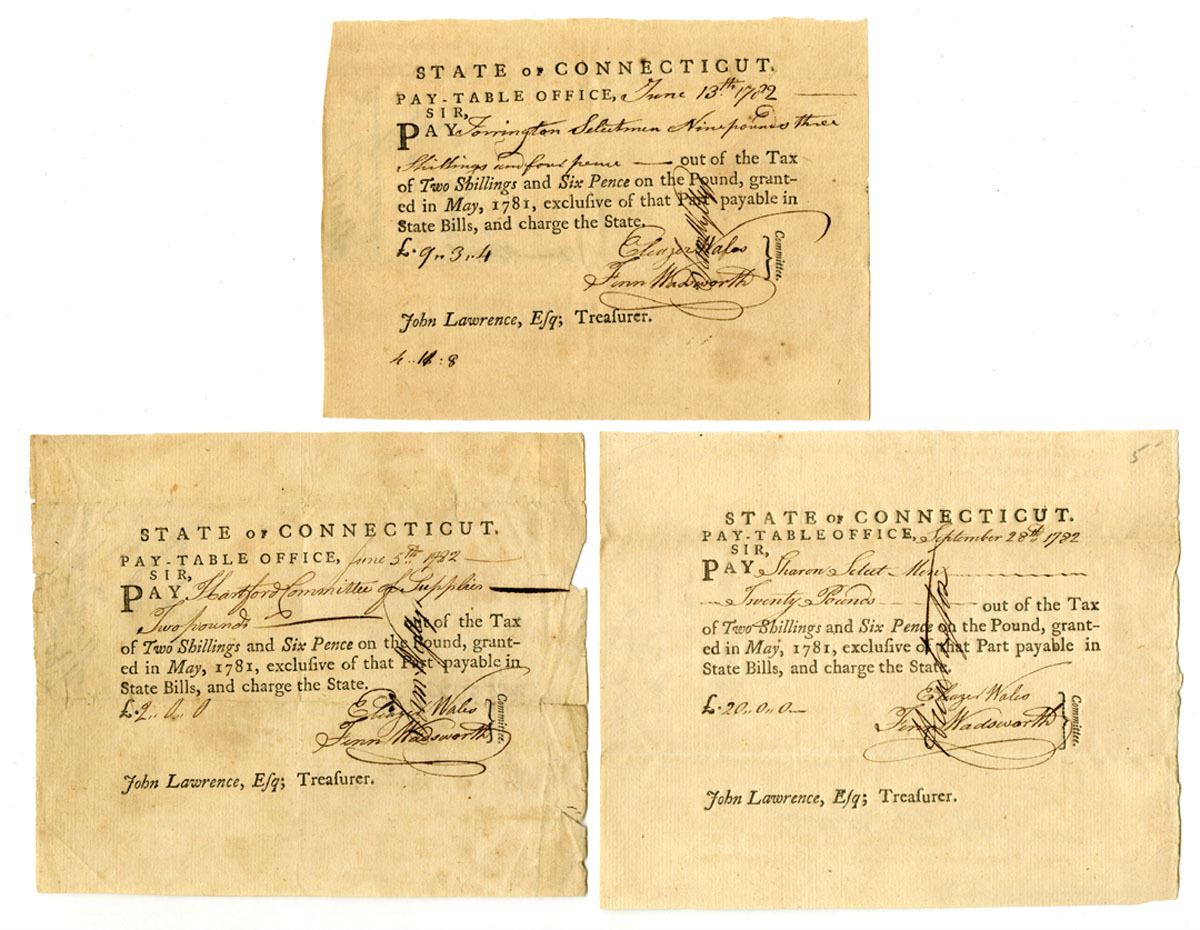 STATE OF CONNECTICUT.
PAY-TABLE OFFICE, June 13th 1782
SIR,
PAY Torrington Selectmen Nine pounds three
Shillings and four pence — out of the Tax
of Two Shillings and Six Pence on the Pound, grant-
ed in May, 1781, excluſive of that Part payable in
State Bills, and charge the State.
£. 9 ,, 3 ,, 4
Eleazer Wales
Fenn Wadsworth
Committee.
John Lawrence, Eſq; Treaſurer.
STATE OF CONNECTICUT.
PAY-TABLE OFFICE, June 5th 1782
SIR,
PAY Hartford Committee of Supplies
Two pounds — out of the Tax
of Two Shillings and Six Pence on the Pound, grant-
ed in May, 1781, excluſive of that Part payable in
State Bills, and charge the State.
£. 2 ,, 0 ,, 0
Eleazer Wales
Fenn Wadsworth
Committee.
John Lawrence, Eſq; Treaſurer.
5
STATE OF CONNECTICUT.
PAY-TABLE OFFICE, September 28th 1782
SIR,
PAY Sharon Select Men
Twenty Pounds — out of the Tax
of Two Shillings and Six Pence on the Pound, grant-
ed in May, 1781, excluſive of that Part payable in
State Bills, and charge the State.
£. 20 ,, 0 ,, 0
Eleazer Wales
Fenn Wadsworth
Committee.
John Lawrence, Eſq; Treaſurer.